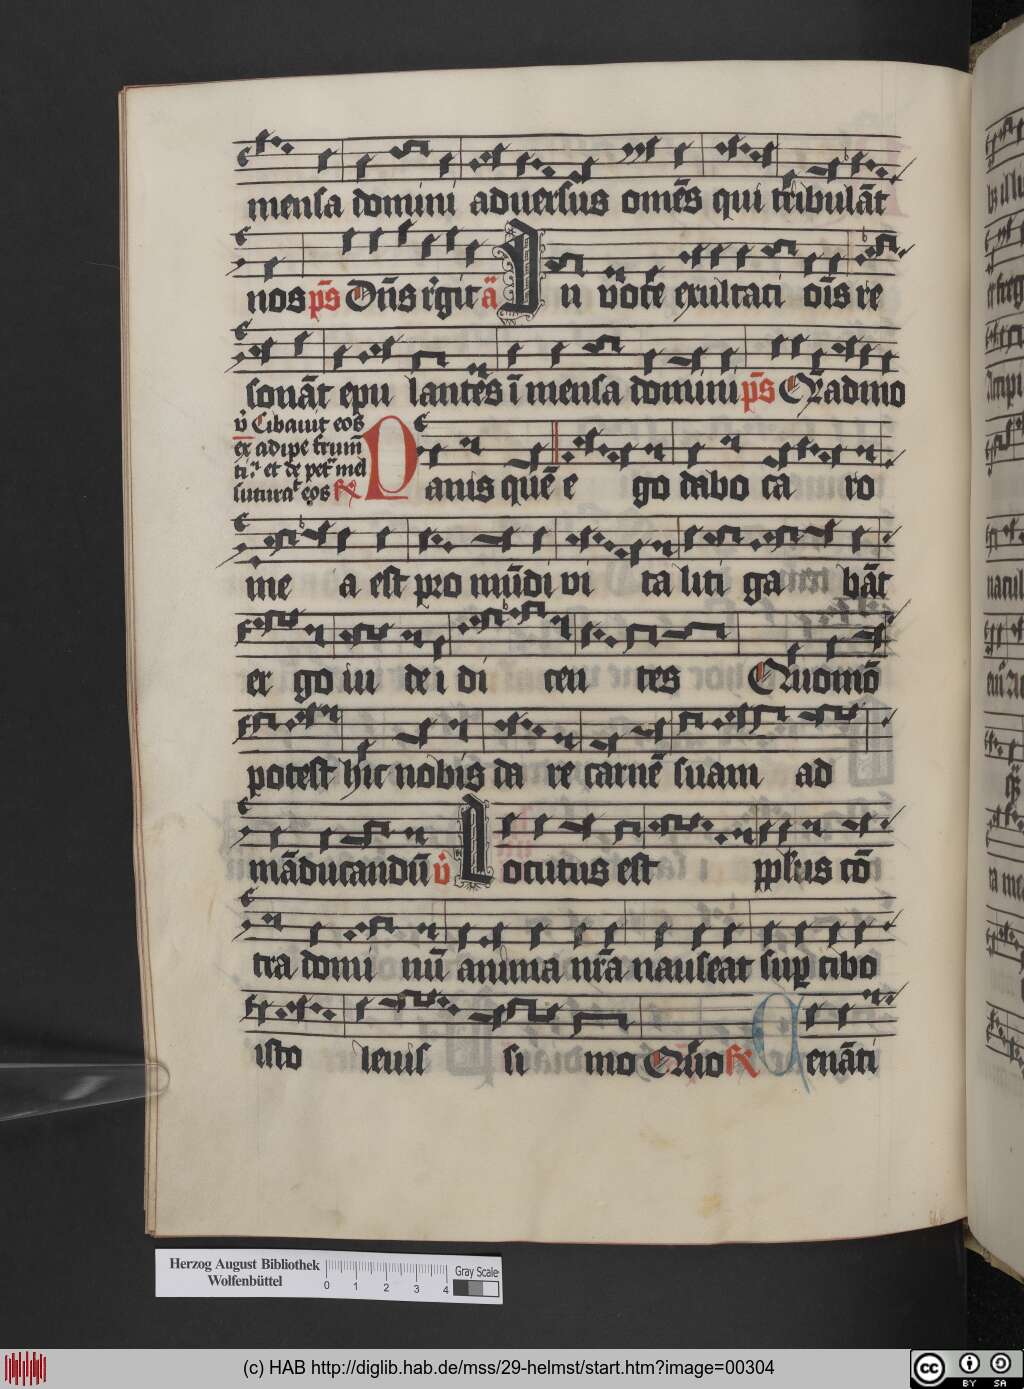 mensa domini aduersus omēs qui tribulāt
nos p̄s Dn̄s rēgit ā In voce exultati oīs re
sonāt epu lantēs ī mensa domini p̄s Qūadmo
v̄ Cibauit eos
ex adipe frum̄
ti et de pet mel
saturat eos R
Panis quē e go dabo ca ro
me a est pro mūdi vi ta liti ga bāt
er go iu de i di cen tes Quomō
potest hic nobis da re carnē suam ad
māducandū v̄ Locutus est ppl̄us cō
tra domi nū anima nr̄a nauseat sup cibo
isto leuis si mo Quō R Cenāti
Herzog August Bibliothek
Wolfenbüttel
0 1 2 3 4
Gray Scale
(c) HAB http://diglib.hab.de/mss/29-helmst/start.htm?image=00304
cc BY SA